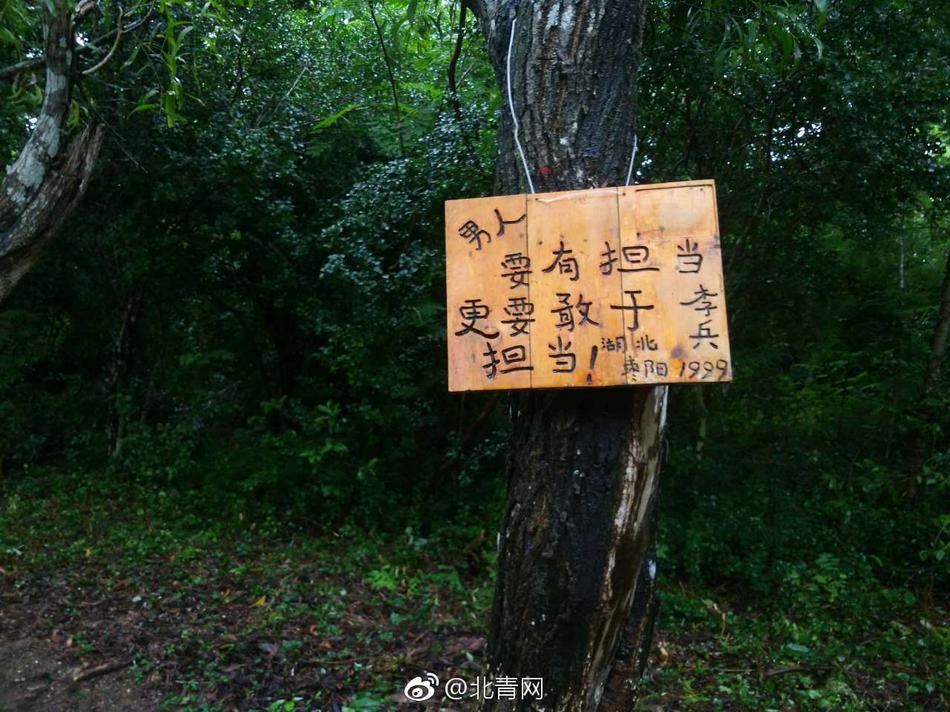 男人
要有担当
更要敢于
担当!
李兵
湖北
枣阳 1999
@北青网